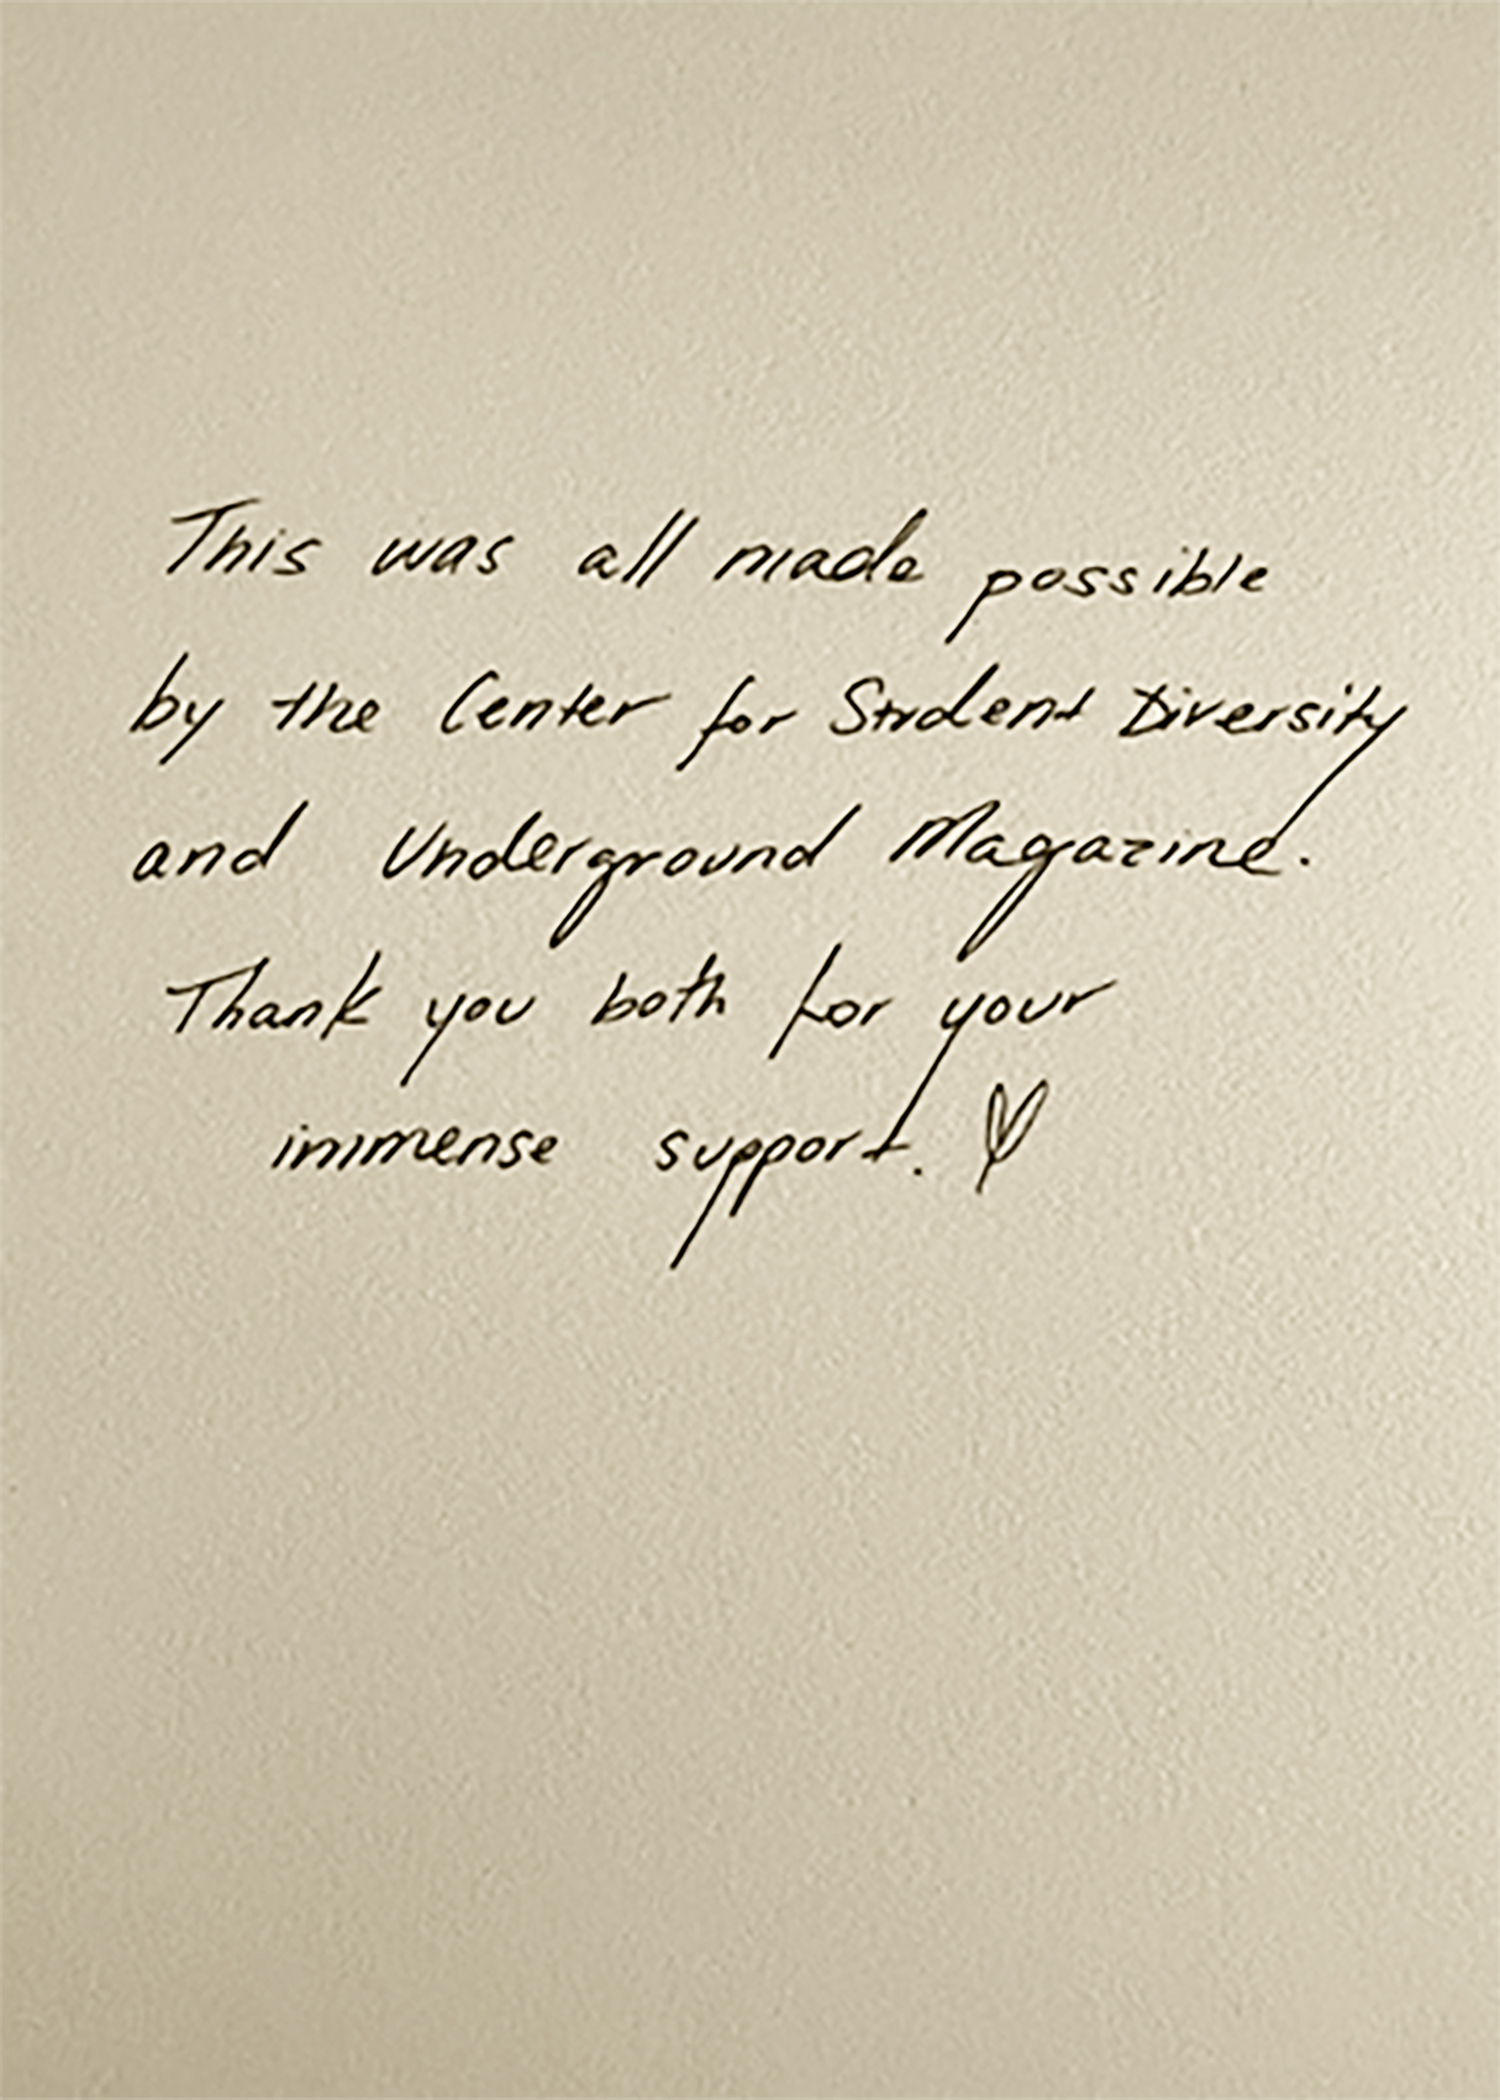 This was all made possible
by the Center for Student Diversity
and Underground Magazine.
Thank you both for your
immense support. ♡